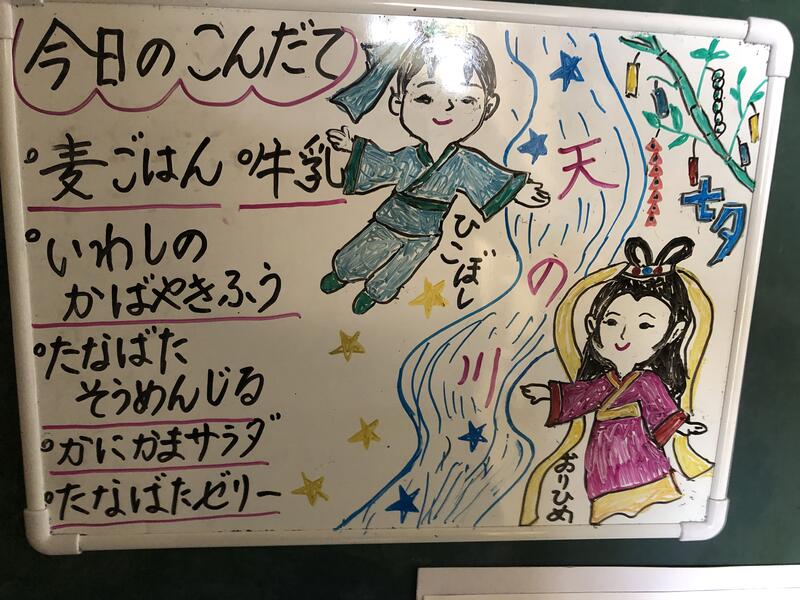 今日のこんだて
麦ごはん 牛乳
いわしの
かばやきふう
たなばた
そうめんじる
かにかまサラダ
たなばたゼリー
ひこぼし
天の川
七夕
おりひめ